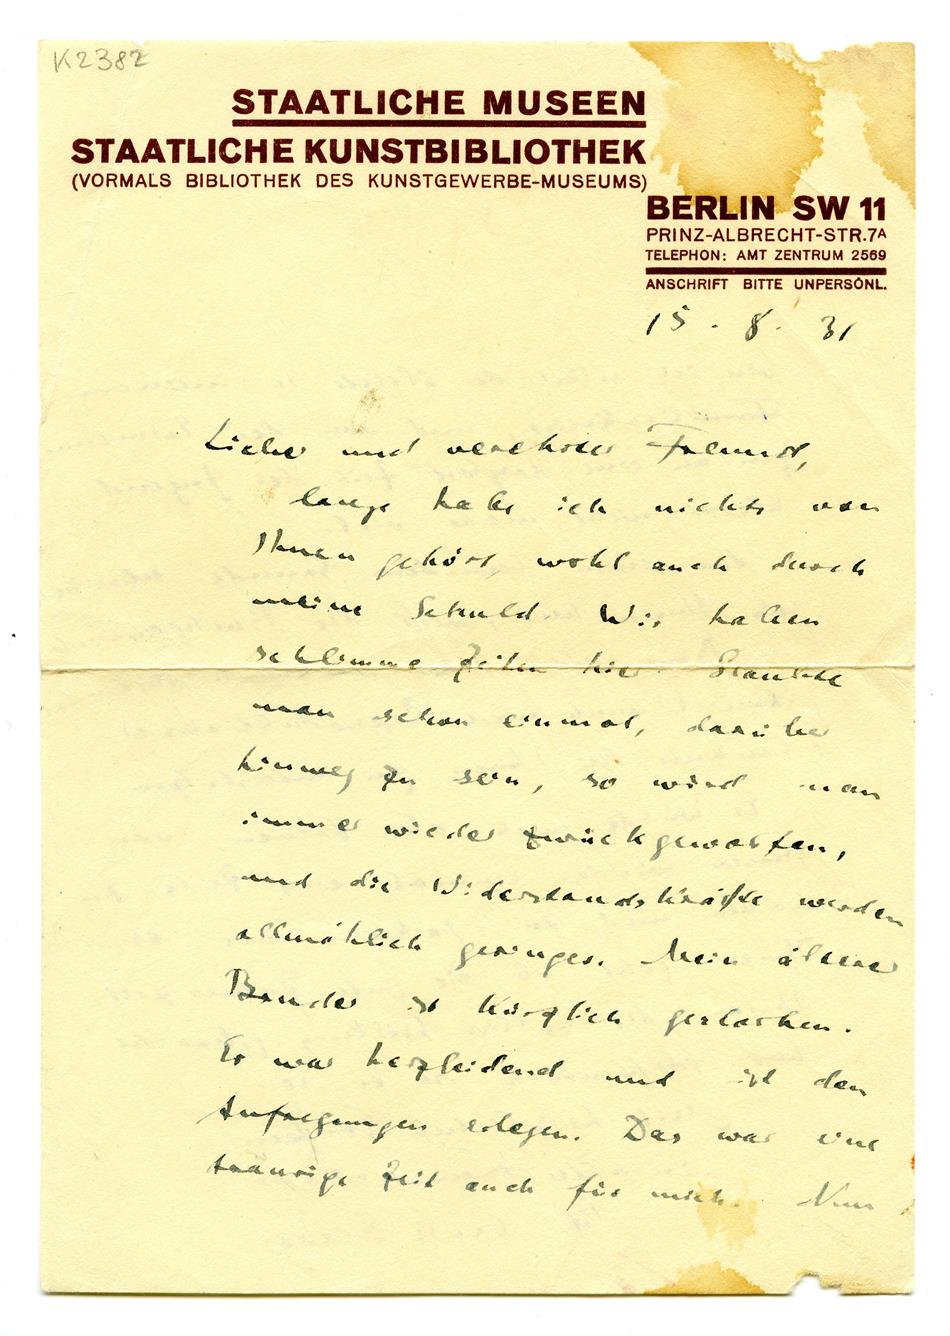 K2382
STAATLICHE MUSEEN
STAATLICHE KUNSTBIBLIOTHEK
(VORMALS BIBLIOTHEK DES KUNSTGEWERBE-MUSEUMS)
BERLIN SW 11
PRINZ-ALBRECHT-STR.7A
TELEPHON: AMT ZENTRUM 2569
ANSCHRIFT BITTE UNPERSÖNL.
15. 8. 31
Lieber und verehrter Freund,
lange habe ich nichts von
Ihnen gehört, wohl auch durch
meine Schuld. Wir haben
schlimme Zeiten hier. Glaubte
man schon einmal, darüber
hinweg zu sein, so wird man
immer wieder zurückgeworfen,
und die Widerstandskräfte werden
allmählich geringer. Mein älterer
Bruder ist kürzlich gestorben.
Er war herzleidend und ist den
Aufregungen erlegen. Das war eine
traurige Zeit auch für mich. Nun